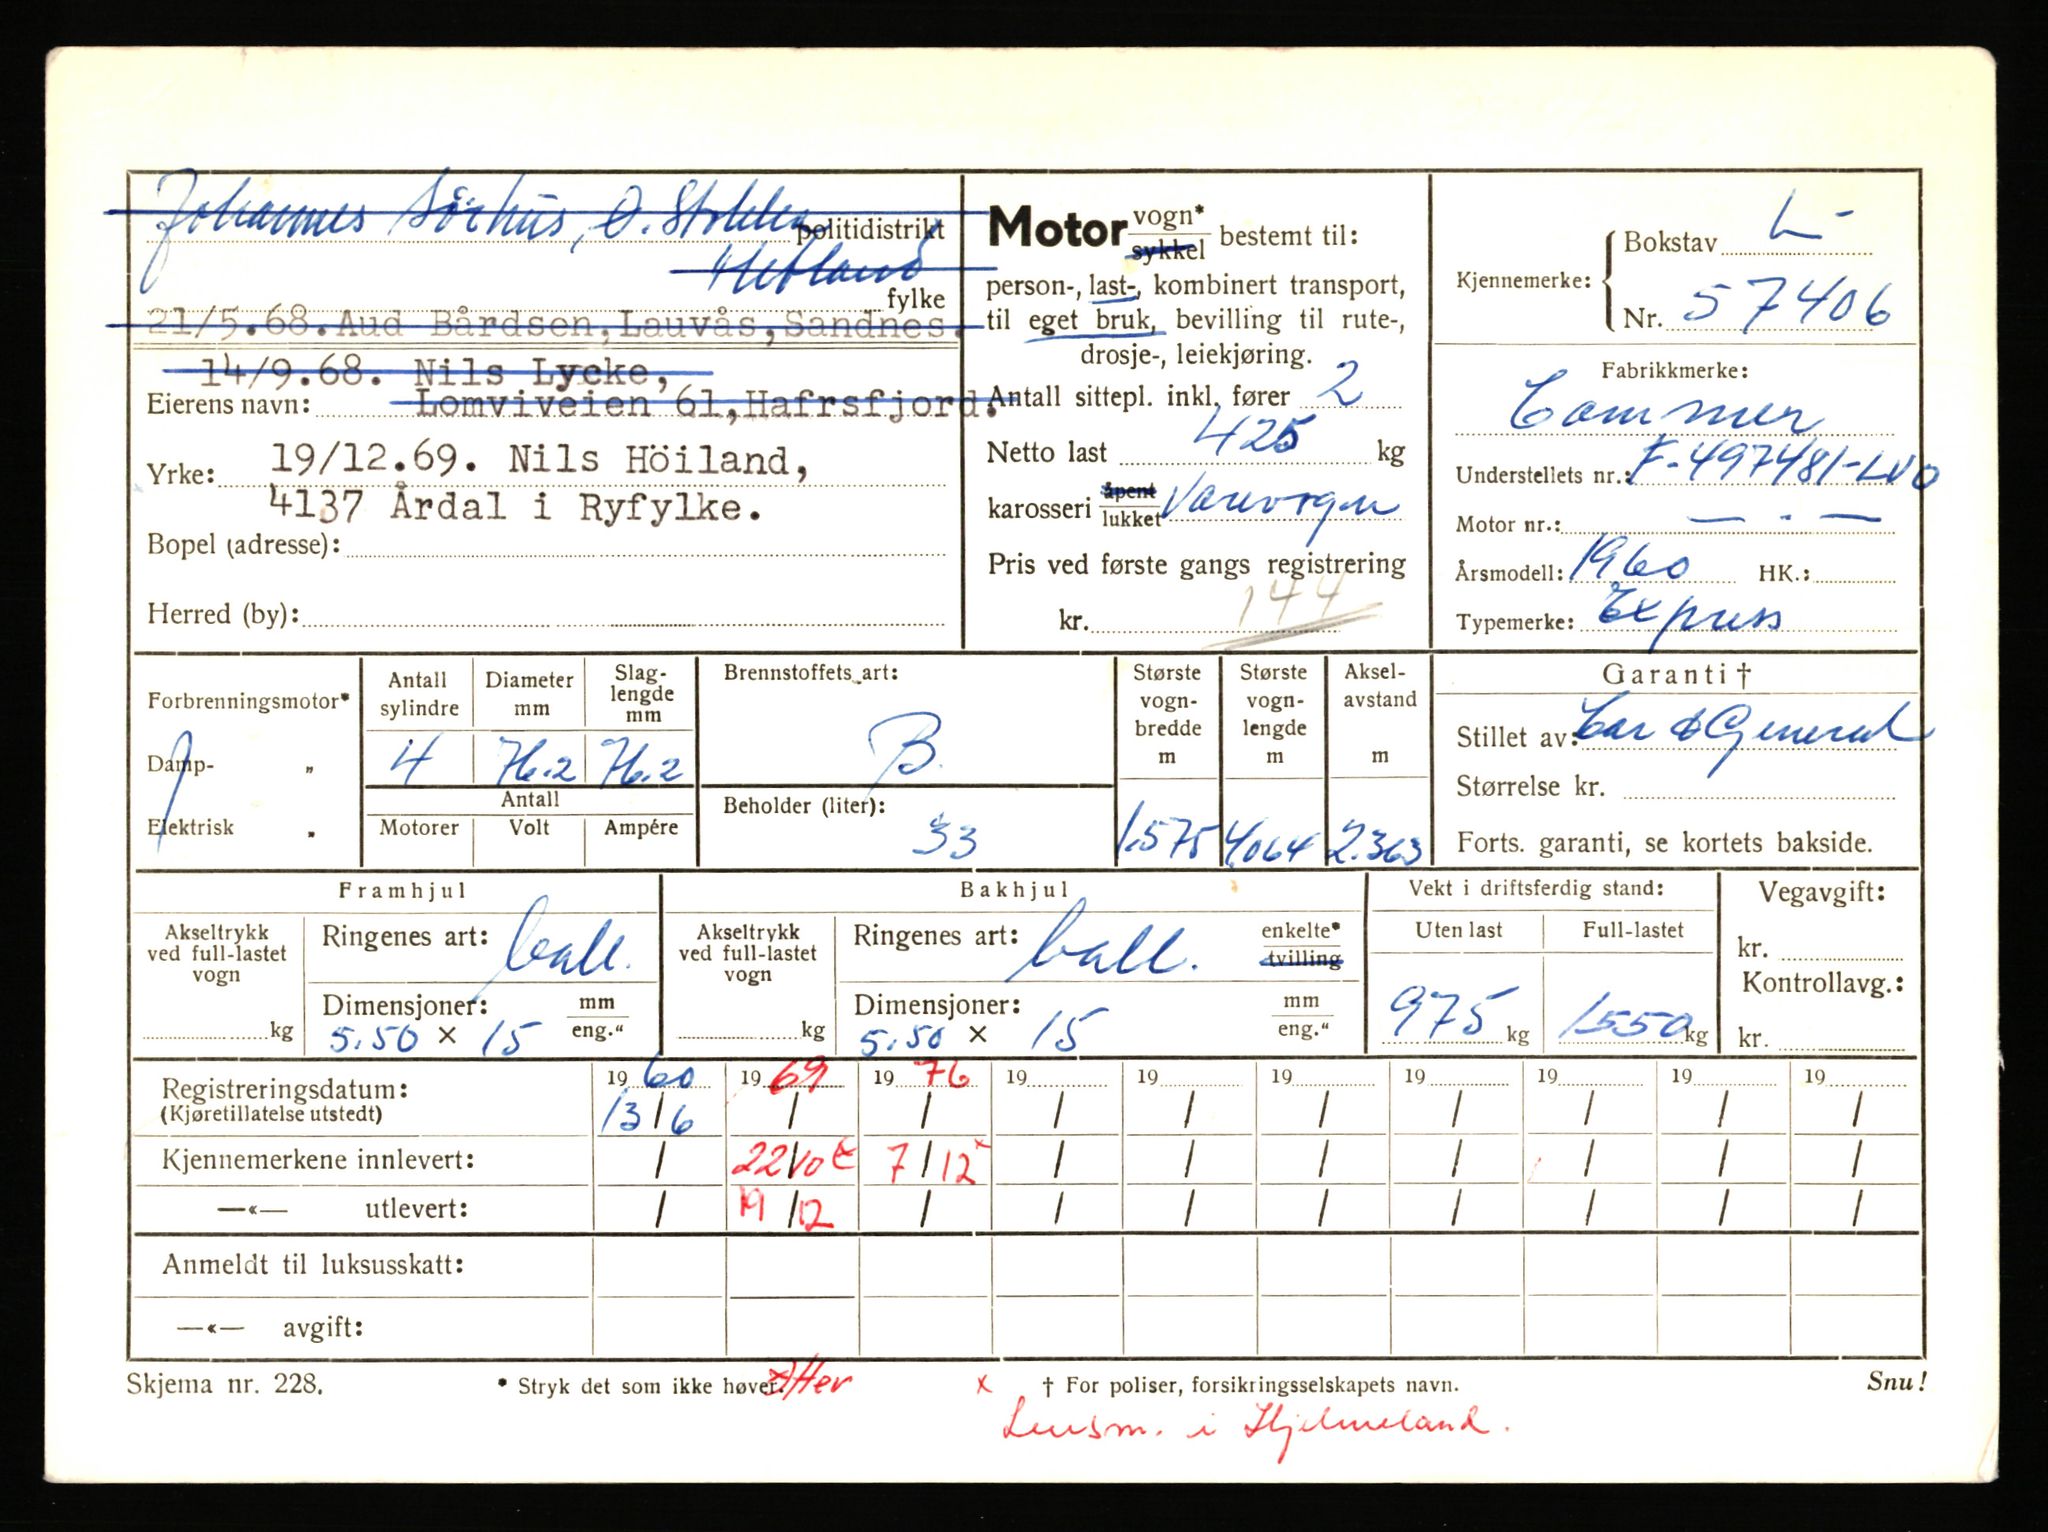 Johannes Sörhus, Ö. Stokka politidistrikt
Hetland fylke
21/5.68. Aud Bårdsen, Lauvås, Sandnes.
14/9.68. Nils Lycke,
Eierens navn: Lomviveien 61, Hafrsfjord.
19/12.69. Nils Höiland,
Yrke:
4137 Årdal i Ryfylke.
Bopel (adresse):
Herred (by):
Motor vogn* sykkel bestemt til:
person-, last-, kombinert transport,
til eget bruk, bevilling til rute-,
drosje-, leiekjøring.
Antall sittepl. inkl. fører 2
Netto last 425 kg
karosseri åpent lukket Varevogn
Pris ved første gangs registrering
kr. 144
Kjennemerke: Bokstav L-
Nr. 57406
Fabrikkmerke:
Commer
Understellets nr.: F-497481-LVO
Motor nr.: — . —
Årsmodell: 1960 HK.:
Typemerke: Express
Forbrenningsmotor*
Damp- „
Elektrisk „
Antall sylindre 4
Diameter mm 76.2
Slag-lengde mm 76.2
Antall
Motorer Volt Ampére
Brennstoffets art:
B.
Beholder (liter):
33
Største vogn-bredde m 1.575
Største vogn-lengde m 4.064
Aksel-avstand m 2.363
Garanti †
Stillet av: Car & General
Størrelse kr.
Forts. garanti, se kortets bakside.
Framhjul
Akseltrykk ved full-lastet vogn kg
Ringenes art: ball.
Dimensjoner: mm eng."
5.50 × 15
Bakhjul
Akseltrykk ved full-lastet vogn kg
Ringenes art: ball. enkelte* tvilling
Dimensjoner: mm eng."
5.50 × 15
Vekt i driftsferdig stand:
Uten last Full-lastet
975 kg 1550 kg
Vegavgift:
kr.
Kontrollavg.:
kr.
Registreringsdatum: 19 60 19 69 19 76 19 19 19 19 19 19 19
(Kjøretillatelse utstedt) 13/6 / / / / / / / / /
Kjennemerkene innlevert: / 22/10 x 7/12 x / / / / / / /
—«— utlevert: / 19/12 / / / / / / / /
Anmeldt til luksusskatt:
—«— avgift:
Skjema nr. 228. * Stryk det som ikke høver. x † For poliser, forsikringsselskapets navn. Snu!
Lensm. i Hjelmeland.